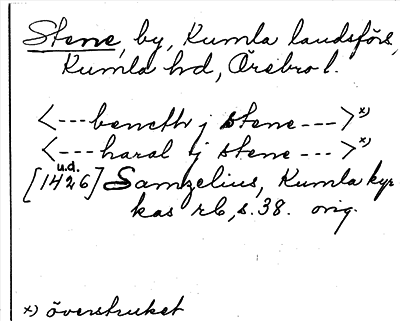 Stene, by, Kumla landsförs,
Kumla hd, Örebro l.
<---beneth j stene--->x)
<---haral j stene --->x)
u.d.
[1426] Samzelius, Kumla kyr
kas rb, s. 38. orig.
x) överstruket